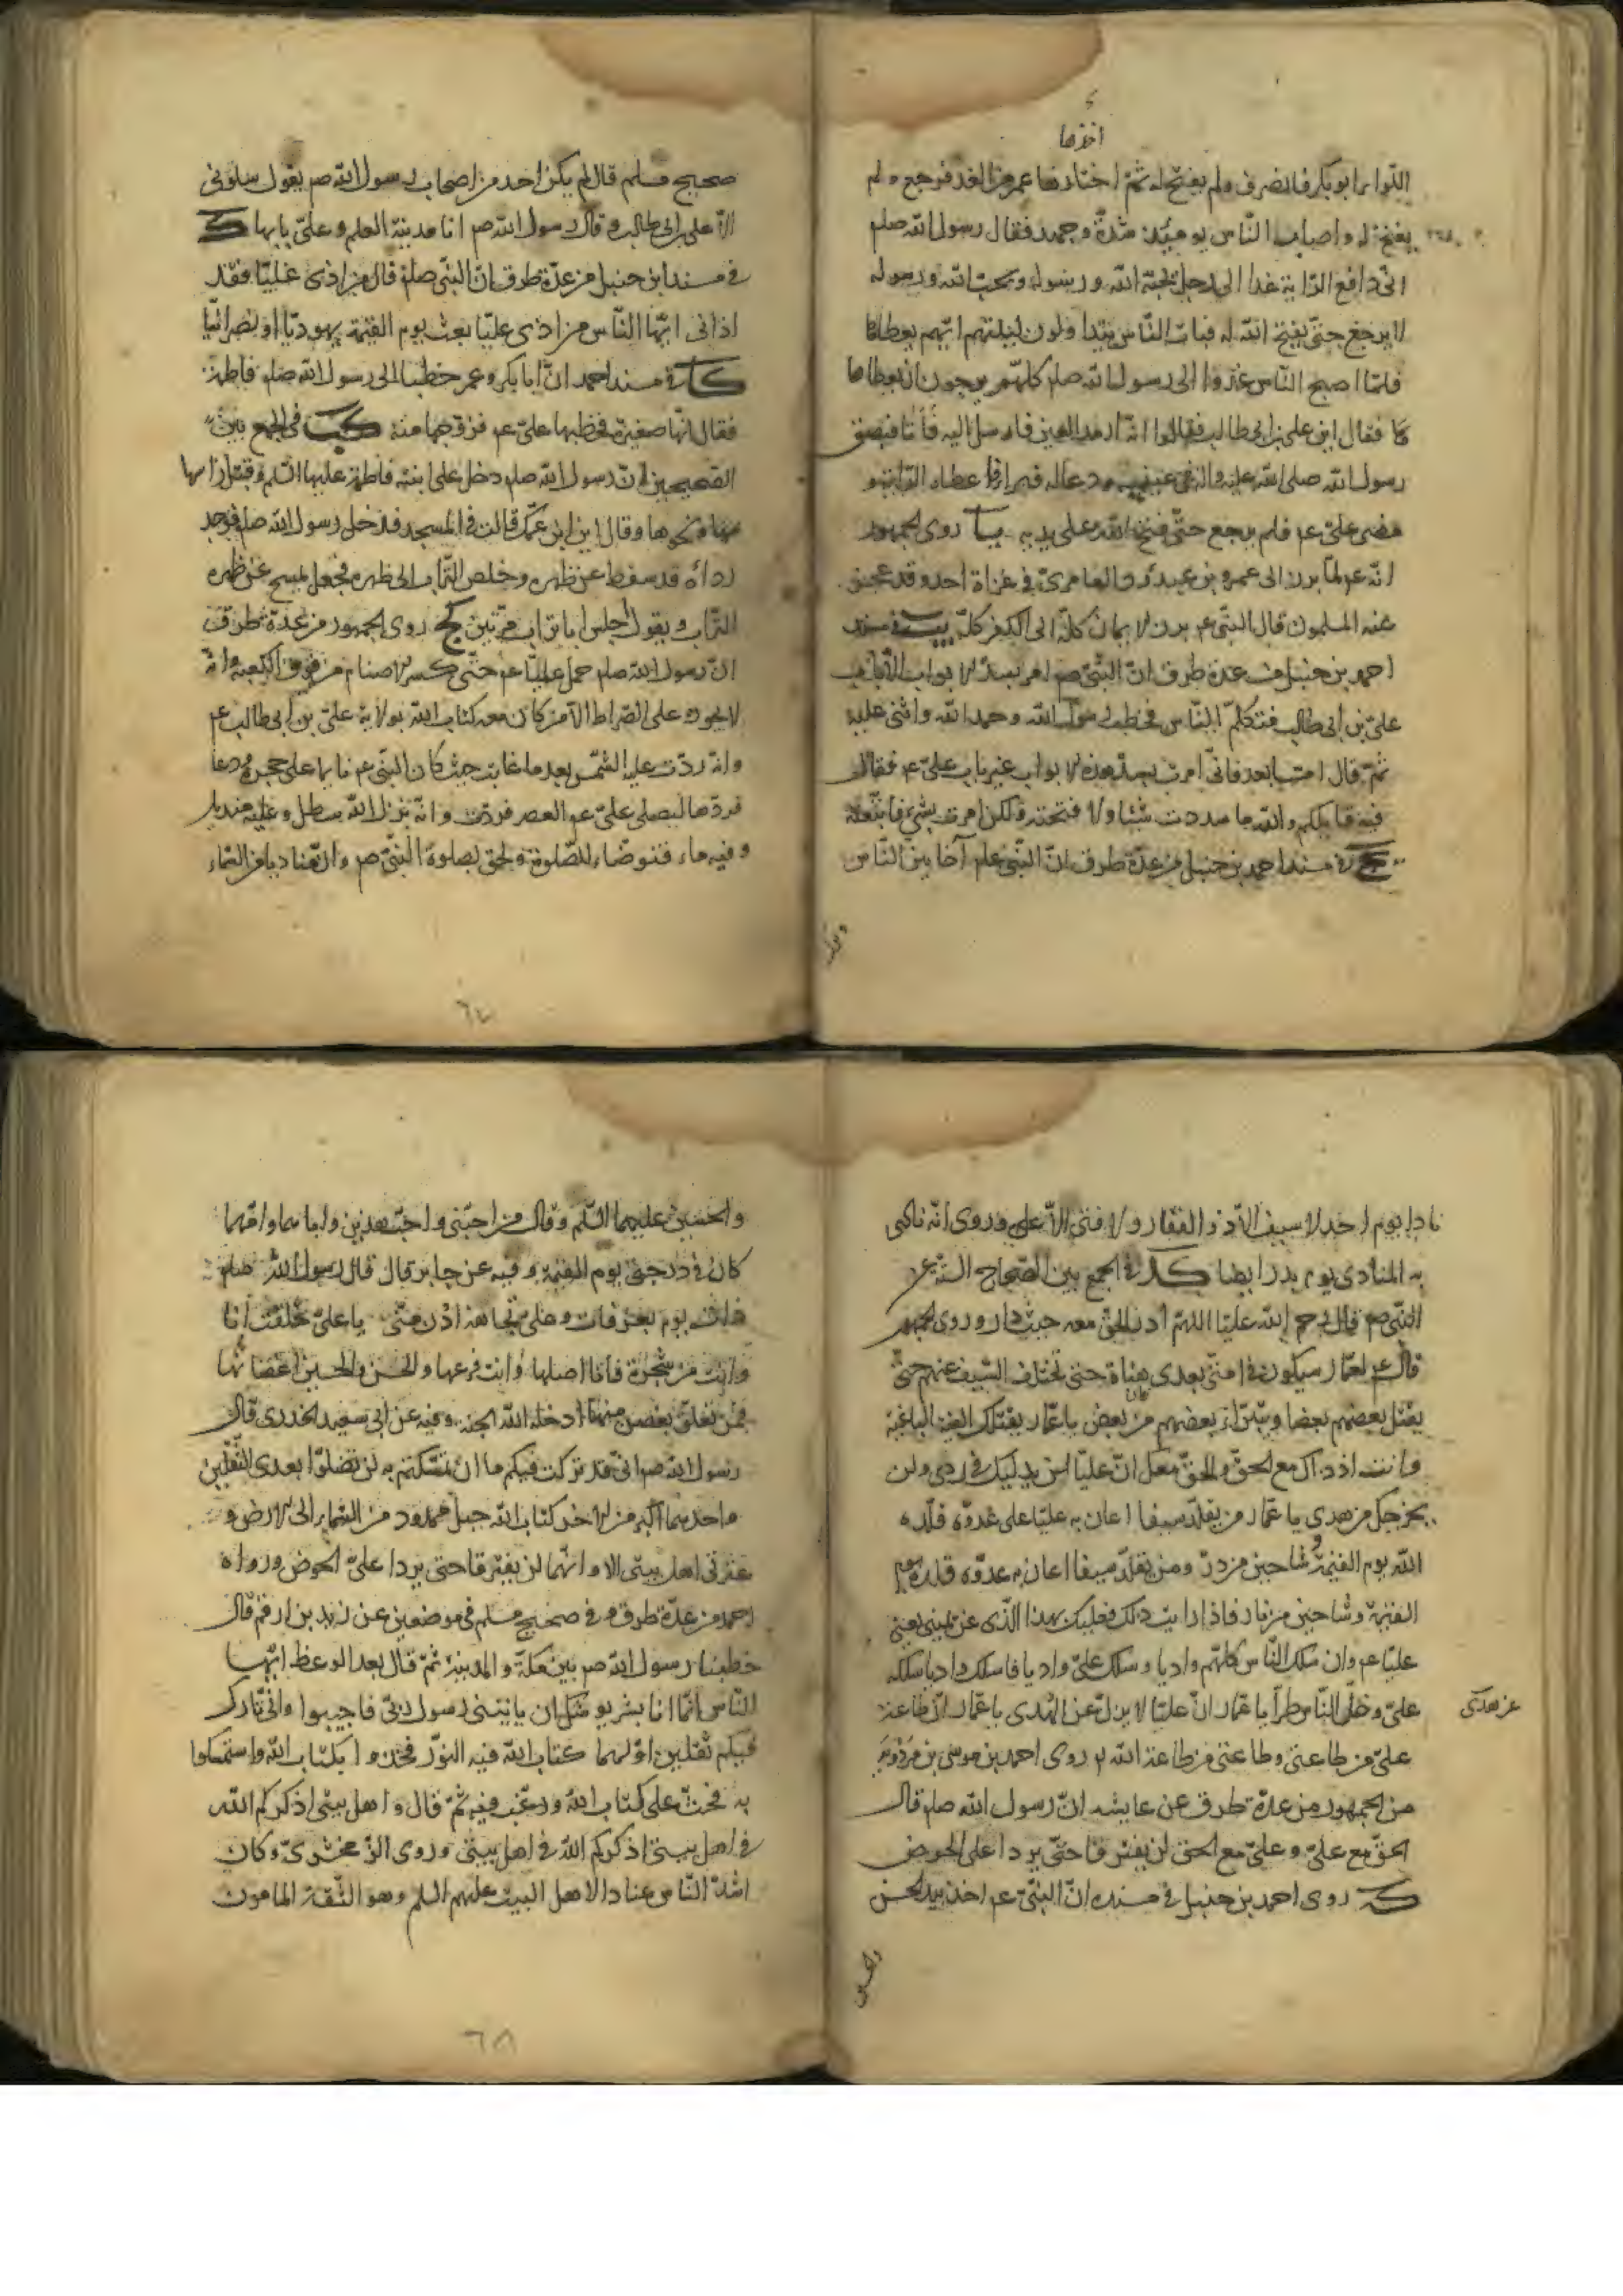 اخذها
اللواء ابو بكر فانصرف ولم يفتح له ثم اختارها عمر من الغد فرجع ولم
يفتح له واصاب الناس يومئذ شدة وجهد فقال رسول الله صلم
انى دافع الراية غدا الى رجل يحبه الله ورسوله ويحب الله ورسوله
لا يرجع حتى يفتح الله له فبات الناس يتداولون ليلتهم ايهم يعطاها
فلما اصبح الناس غدوا الى رسول الله صلم كلهم يرجون ان يعطاها
فقال اين على بن ابى طالب فقالوا انه ارمد العين فارسل اليه فأتا فبصق
رسول الله صلى الله عليه واله فى عينيه ودعا له فبرا فاعطاه الراية و
مضى على عم فلم يرجع حتى فتح الله على يديه يا روى الجمهور
انه عم لما برز الى عمرو بن عبدود العامرى فى غزاة احد وقد عجز
عنه المسلمون قال النبى عم برز الايمان كله الى الكفر كله يب فى مسند
احمد بن حنبل من عدة طرق ان النبى صم امر بسد الابواب الا باب
على بن ابى طالب فتكلم الناس فخطب رسول الله وحمد الله واثنى عليه
ثم قال اما بعد فانى امرت بسد هذه الابواب غير باب على عم فقال
فيه قايلكم والله ما سددت شيئا ولا فتحته ولكن امرت بشئ فاتبعته
يج فى مسند احمد بن حنبل من عدة طرق ان النبى صلم آخا بين الناس
صحيح مسلم قال لم يكن احد من اصحاب رسول الله صم يقول سلونى
الا على بن ابى طالب وقال رسول الله صم انا مدينة العلم وعلى بابها ك
فى مسند ابن حنبل من عدة طرق ان النبى صلم قال من اذى عليا فقد
اذانى ايها الناس من اذى عليا بعث يوم القيمة يهوديا او نصرانيا
كا فى مسند احمد ان ابا بكر وعمر خطبا الى رسول الله صلم فاطمة
فقال انها صغيرة فخطبها على عم فزوجها منه كب فى الجمع بين
الصحيحين ان رسول الله صلم دخل على ابنته فاطمة عليها السلم وقبل راسها
ونحوها وقال اين ابن عمك قالت فى المسجد فدخل رسول الله صلم فوجد
رداه قد سقط عن ظهره وخلص التراب الى ظهره فجعل يمسح عن ظهره
التراب ويقول اجلس ابا تراب مرتين كج روى الجمهور من عدة طرق
ان رسول الله صلم حمل عليا عم حتى كسر الاصنام من فوق الكعبه وانه
لا يجوز على الصراط الا من كان معه كتاب الله بولاية على بن ابى طالب عم
وانه ردت عليه الشمس بعد ما غابت حيث كان النبى عم نايما على حجره ودعا
فردها ليصلى على عم العصر فردت وانه نزل الله سطل وعليه منديل
وفيه ماء فتوضاء للصلوة ولحق بصلوة النبى صم وان مناديا من السماء
٦٤
نادا يوم احد لا سيف الا ذو الفقار ولا فتى الا على وروى انه نادى
به المنادى يوم بدر ايضا كد فى الجمع بين الصحاح الستة عن
النبى صم قال رحم الله عليا اللهم ادر الحق معه حيث دار وروى الجمهور
قال عم لعمار سيكون فى امتى بعدى هناة حتى تختلف السيف عنهم حتى
يقتل بعضهم بعضا ويتبرأ بعضهم من بعض يا عمار يقتلك الفئة الباغية
وانت اذ ذاك مع الحق والحق معك ان عليا لن يدليك فى ردى ولن
يخرجك من هدى يا عمار من تقلد سيفا اعان به عليا على عدوه قلده
الله يوم القيمة وشاحين من در ومن تقلد سيفا اعان به عدوه قلده يوم
القيمة وشاحين من نار فاذا رايت ذلك فعليك بهذا الذى عن يمينى يعنى
عليا عم وان سلك الناس كلهم واديا وسلك على واديا فاسلك واديا سلكه
على وخل الناس طرا يا عمار ان عليا لا يزل عن الهدى يا عمار ان طاعة
عن هدى
على من طاعتى وطاعتى من طاعة الله روى احمد بن موسى بن مردويه
من الجمهور من عدة طرق عن عايشه ان رسول الله صلم قال
الحق مع على وعلى مع الحق لن يفترقا حتى يردا على الحوض
كه روى احمد بن حنبل فى مسنده ان النبى عم اخذ بيد الحسن
والحسين عليهما السلم وقال من احبنى واحب هذين واباهما وامهما
كان فى درجتى يوم القيمة وفيه عن جابر قال قال رسول الله صلم
ذات يوم بعرفات وعلى تجاهه اذن منى يا على خلقت انا
وانت من شجرة فانا اصلها وانت فرعها والحسن والحسين اغصانها
فمن تعلق بغصن منها ادخله الله الجنه وفيه عن ابى سعيد الخدرى قال
رسول الله صم انى قد تركت فيكم ما ان تمسكتم به لن تضلوا بعدى الثقلين
واحدهما اكبر من الاخر كتاب الله حبل ممدود من السماء الى الارض و
عترتى اهل بيتى الا وانهما لن يفترقا حتى يردا على الحوض ورواه
احمد من عدة طرق وفى صحيح مسلم فى موضعين عن زيد بن ارقم قال
خطبنا رسول الله صم بين مكة والمدينة ثم قال بعد الوعظ ايها
الناس انما انا بشر يوشك ان ياتينى رسول ربى فاجيبوا وانى تارك
فيكم ثقلين اولهما كتاب الله فيه النور فخذوا بكتاب الله واستمسكوا
به فحث على كتاب الله ورغب فيه ثم قال واهل بيتى اذكركم الله
فى اهل بيتى اذكركم الله فى اهل بيتى وروى الزمخشرى وكان
اشد الناس عنادا لاهل البيت عليهم السلم وهو الثقة المامون